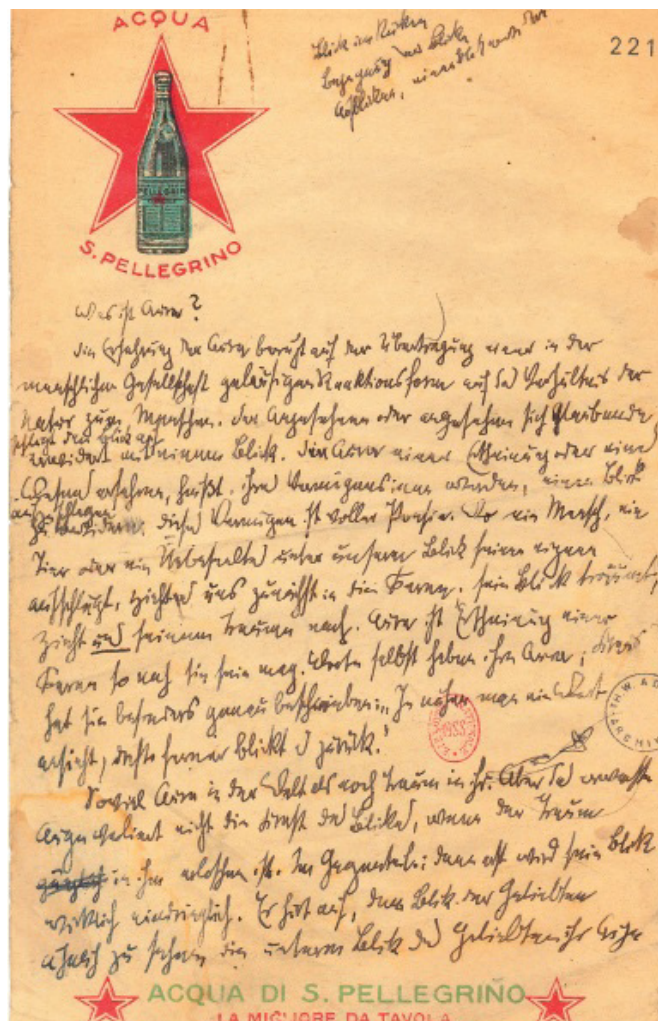 ACQUA
S. PELLEGRINO
PELLEGRINO
221
Blick im Rücken
Begegnung der Blicke
Aufblicken,
Was ist Aura?
Die Erfahrung der Aura beruht auf der Übertragung einer in der
menschlichen Gesellschaft geläufigen Reaktionsform auf das Verhältnis der
Natur zum Menschen. Der Angesehene oder angesehen sich Glaubende
schlägt den Blick auf
erwidert mit einem Blick. Die Aura einer Erscheinung oder eines
Wesens erfahren, heißt, ihres Vermögens inne werden, einen Blick
aufzuschlagen
zu erwidern. Dieses Vermögen ist voller Poesie. Wo ein Mensch, ein
Tier oder ein Unbeseeltes unter unserm Blick seinen eignen
aufschlägt, zieht es uns zunächst in die Ferne. sein Blick träumt,
zieht uns seinem Traume nach. Aura ist Erscheinung einer
Ferne so nah sie sein mag. Worte selbst haben ihre Aura; Kraus
hat sie besonders genau beschrieben: „Je näher man ein Wort
ansieht, desto ferner blickt es zurück."
Soviel Aura in der Welt als noch Traum in ihr. Aber das erwachte
Auge verlernt nicht die Kunst des Blicks, wenn der Traum
in ihm erloschen ist. Im Gegenteil: dann erst wird sein Blick
wirklich eindringlich. Er hört auf, dem Blick der Geliebten
ähnlich zu sehen die unterm Blick des Geliebten ihr Auge
ACQUA DI S. PELLEGRINO
LA MIGLIORE DA TAVOLA